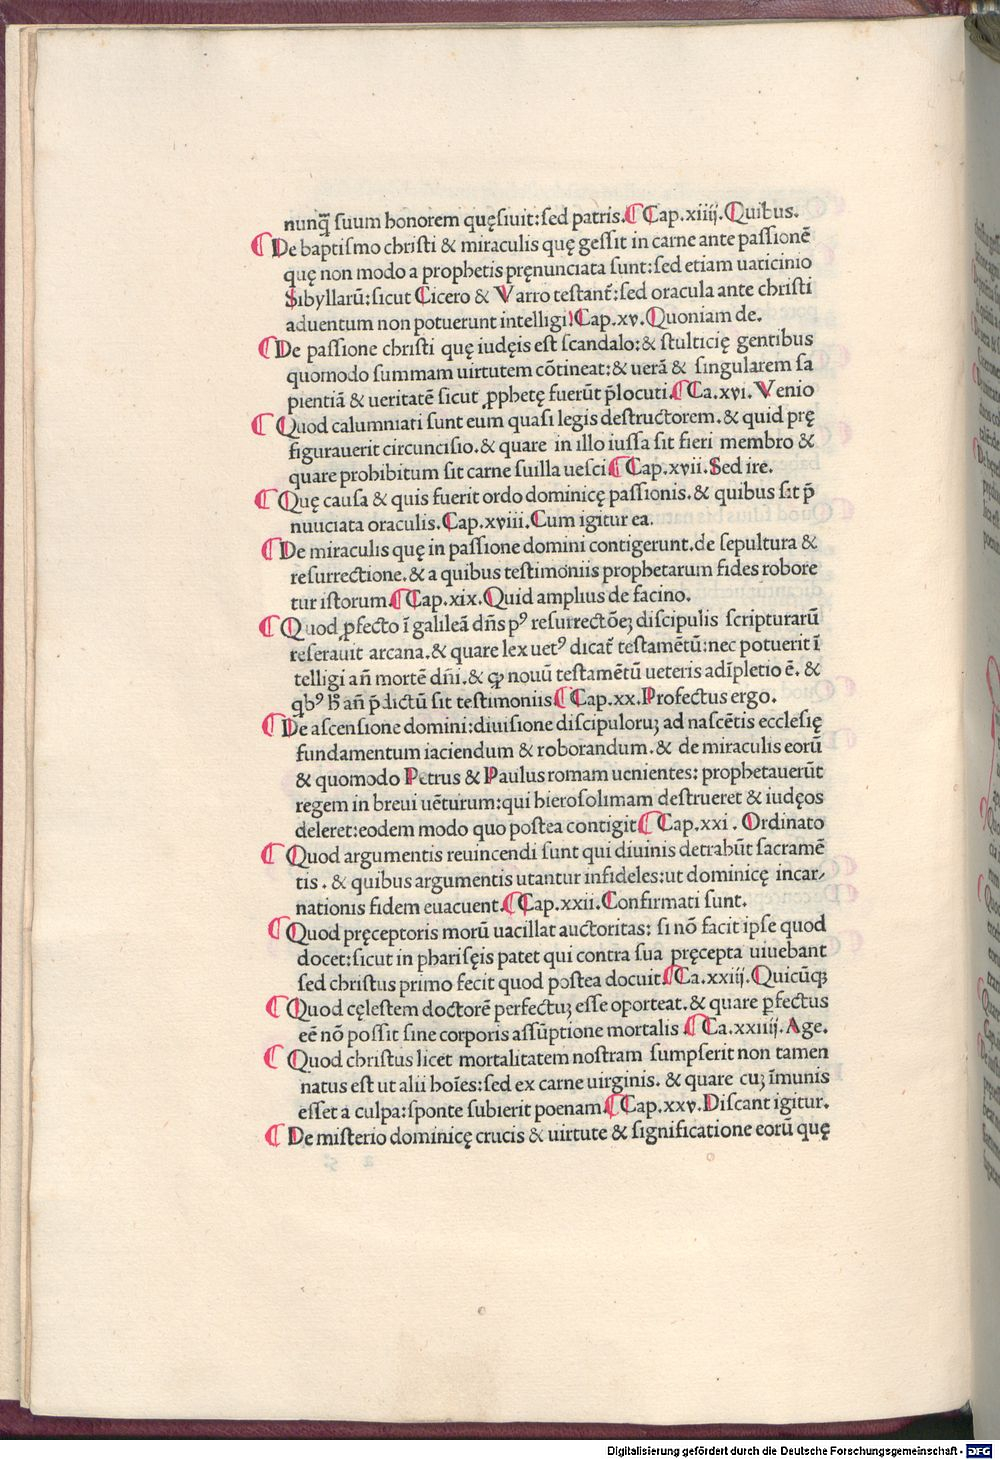 nunq̃ suum honorem quęsiuit:sed patris. ¶ Cap.xiiij. Quibus.
¶ De baptismo christi & miraculis quę gessit in carne ante passionē
quę non modo a prophetis pręnunciata sunt:sed etiam uaticinio
Sibyllarū:sicut Cicero & Varro testant̃:sed oracula ante christi
aduentum non potuerunt intelligi Cap.xv. Quoniam de.
¶ De passione christi quę iudęis est scandalo:& stulticię gentibus
quomodo summam uirtutem cōtineat:& uerā & singularem sa
pientiā & ueritatē sicut ꝓphetę fuerūt p̄locuti. ¶ Ca.xvi. Venio
¶ Quod calumniati sunt eum quasi legis destructorem. & quid prę
figurauerit circuncisio. & quare in illo iussa sit fieri membro &
quare prohibitum sit carne suilla uesci ¶ Cap.xvii. Sed ire.
¶ Quę causa & quis fuerit ordo dominicę passionis. & quibus sit p̄
nuuciata oraculis. Cap.xviii. Cum igitur ea.
¶ De miraculis quę in passione domini contigerunt. de sepultura &
resurrectione. & a quibus testimoniis prophetarum fides robore
tur istorum ¶ Cap.xix. Quid amplius de facino.
¶ Quod ꝓfecto ī galileā dñs pꝰ resurrectōeꝫ discipulis scripturarū
reserauit arcana. & quare lex uetꝰ dicat̃ testamētū:nec potuerit ī
telligi añ mortē dñi. & ꝙ nouū testamētū ueteris adīpletio ē. &
qbꝰ ħ añ p̄dictū sit testimoniis ¶ Cap.xx. Profectus ergo.
¶ De ascensione domini:diuisione discipuloruꝫ ad nascētis ecclesię
fundamentum iaciendum & roborandum. & de miraculis eorū
& quomodo Petrus & Paulus romam uenientes: prophetauerūt
regem in breui uēturum:qui hierosolimam destrueret & iudęos
deleret:eodem modo quo postea contigit ¶ Cap.xxi. Ordinato
¶ Quod argumentis reuincendi sunt qui diuinis detrahūt sacramē
tis. & quibus argumentis utantur infideles:ut dominicę incar⸗
nationis fidem euacuent. ¶ Cap.xxii. Confirmati sunt.
¶ Quod pręceptoris morū uacillat auctoritas: si nō facit ipse quod
docet:sicut in pharisęis patet qui contra sua pręcepta uiuebant
sed christus primo fecit quod postea docuit. ¶ Ca.xxiij. Quicūqꝫ
¶ Quod cęlestem doctorē perfectuꝫ esse oporteat. & quare ꝑfectus
eē nō possit sine corporis assūptione mortalis ¶ Ca.xxiiij. Age.
¶ Quod christus licet mortalitatem nostram sumpserit non tamen
natus est ut alii hoīes:sed ex carne uirginis. & quare cuꝫ īmunis
esset a culpa:sponte subierit poenam ¶ Cap.xxv. Discant igitur.
¶ De misterio dominicę crucis & uirtute & significatione eorū quę
Digitalisierung gefördert durch die Deutsche Forschungsgemeinschaft - DFG